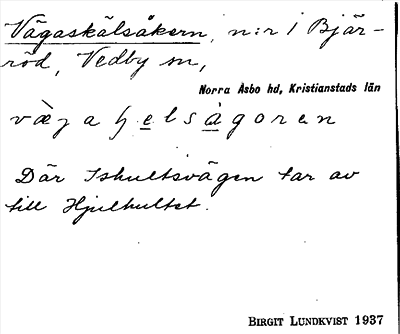 Vägaskälsåkern, n:r 1 Bjär-
röd, Vedby sn,
Norra Åsbo hd, Kristianstads län
Där Ishultsvägen tar av
till Hjulhultet.
BIRGIT LUNDKVIST 1937